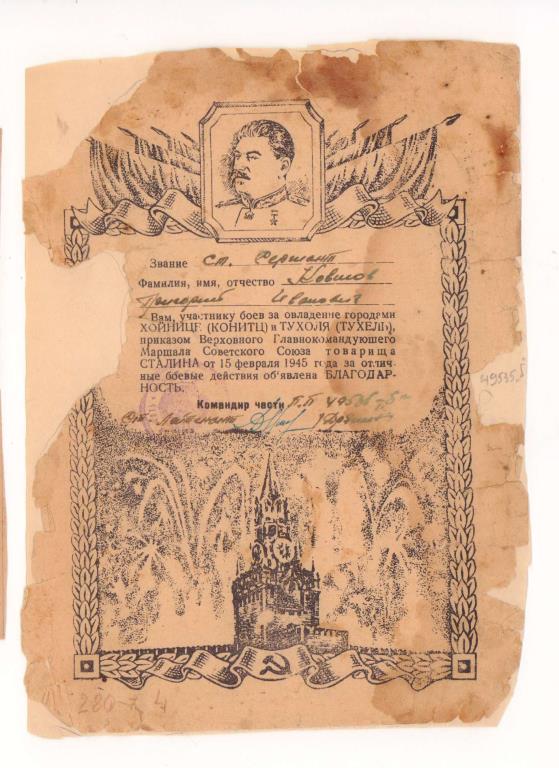 Звание ст. Сержант
Фамилия, имя, отчество Новиков
Григорий Иванович
Вам, участнику боев за овладение городами
ХОЙНИЦЕ (КОНИТЦ) и ТУХОЛЯ (ТУХЕЛЬ),
приказом Верховного Главнокомандующего
Маршала Советского Союза товарища
СТАЛИНА от 15 февраля 1945 года за отлич-
ные боевые действия об'явлена БЛАГОДАР-
НОСТЬ.
49535
Командир части П.П 49535
Лейтенант
280-
4